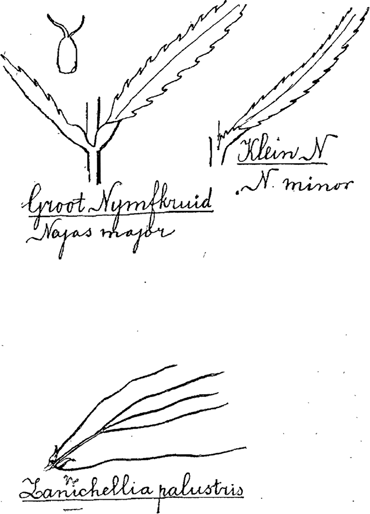 Groot Nymfkruid
Najas major
Klein N
N. minor
Zanichellia palustris